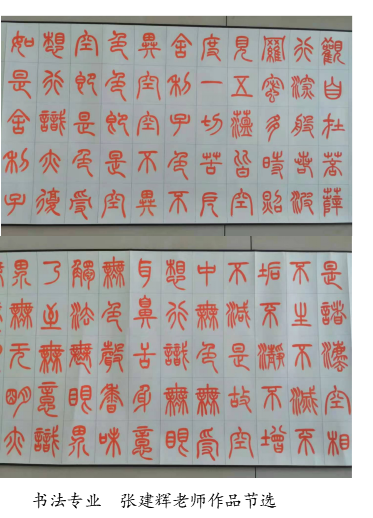 觀自在菩薩
行深般若波
羅蜜多時照
見五蘊皆空
度一切苦厄
舍利子色不
異空空不異
色色即是空
空即是色受
想行識亦復
如是舍利子
是諸法空相
不生不滅不
垢不淨不增
不減是故空
中無色無受
想行識無眼
耳鼻舌身意
無色聲香味
觸法無眼界
乃至無意識
界無无明亦
书法专业 张建辉老师作品节选